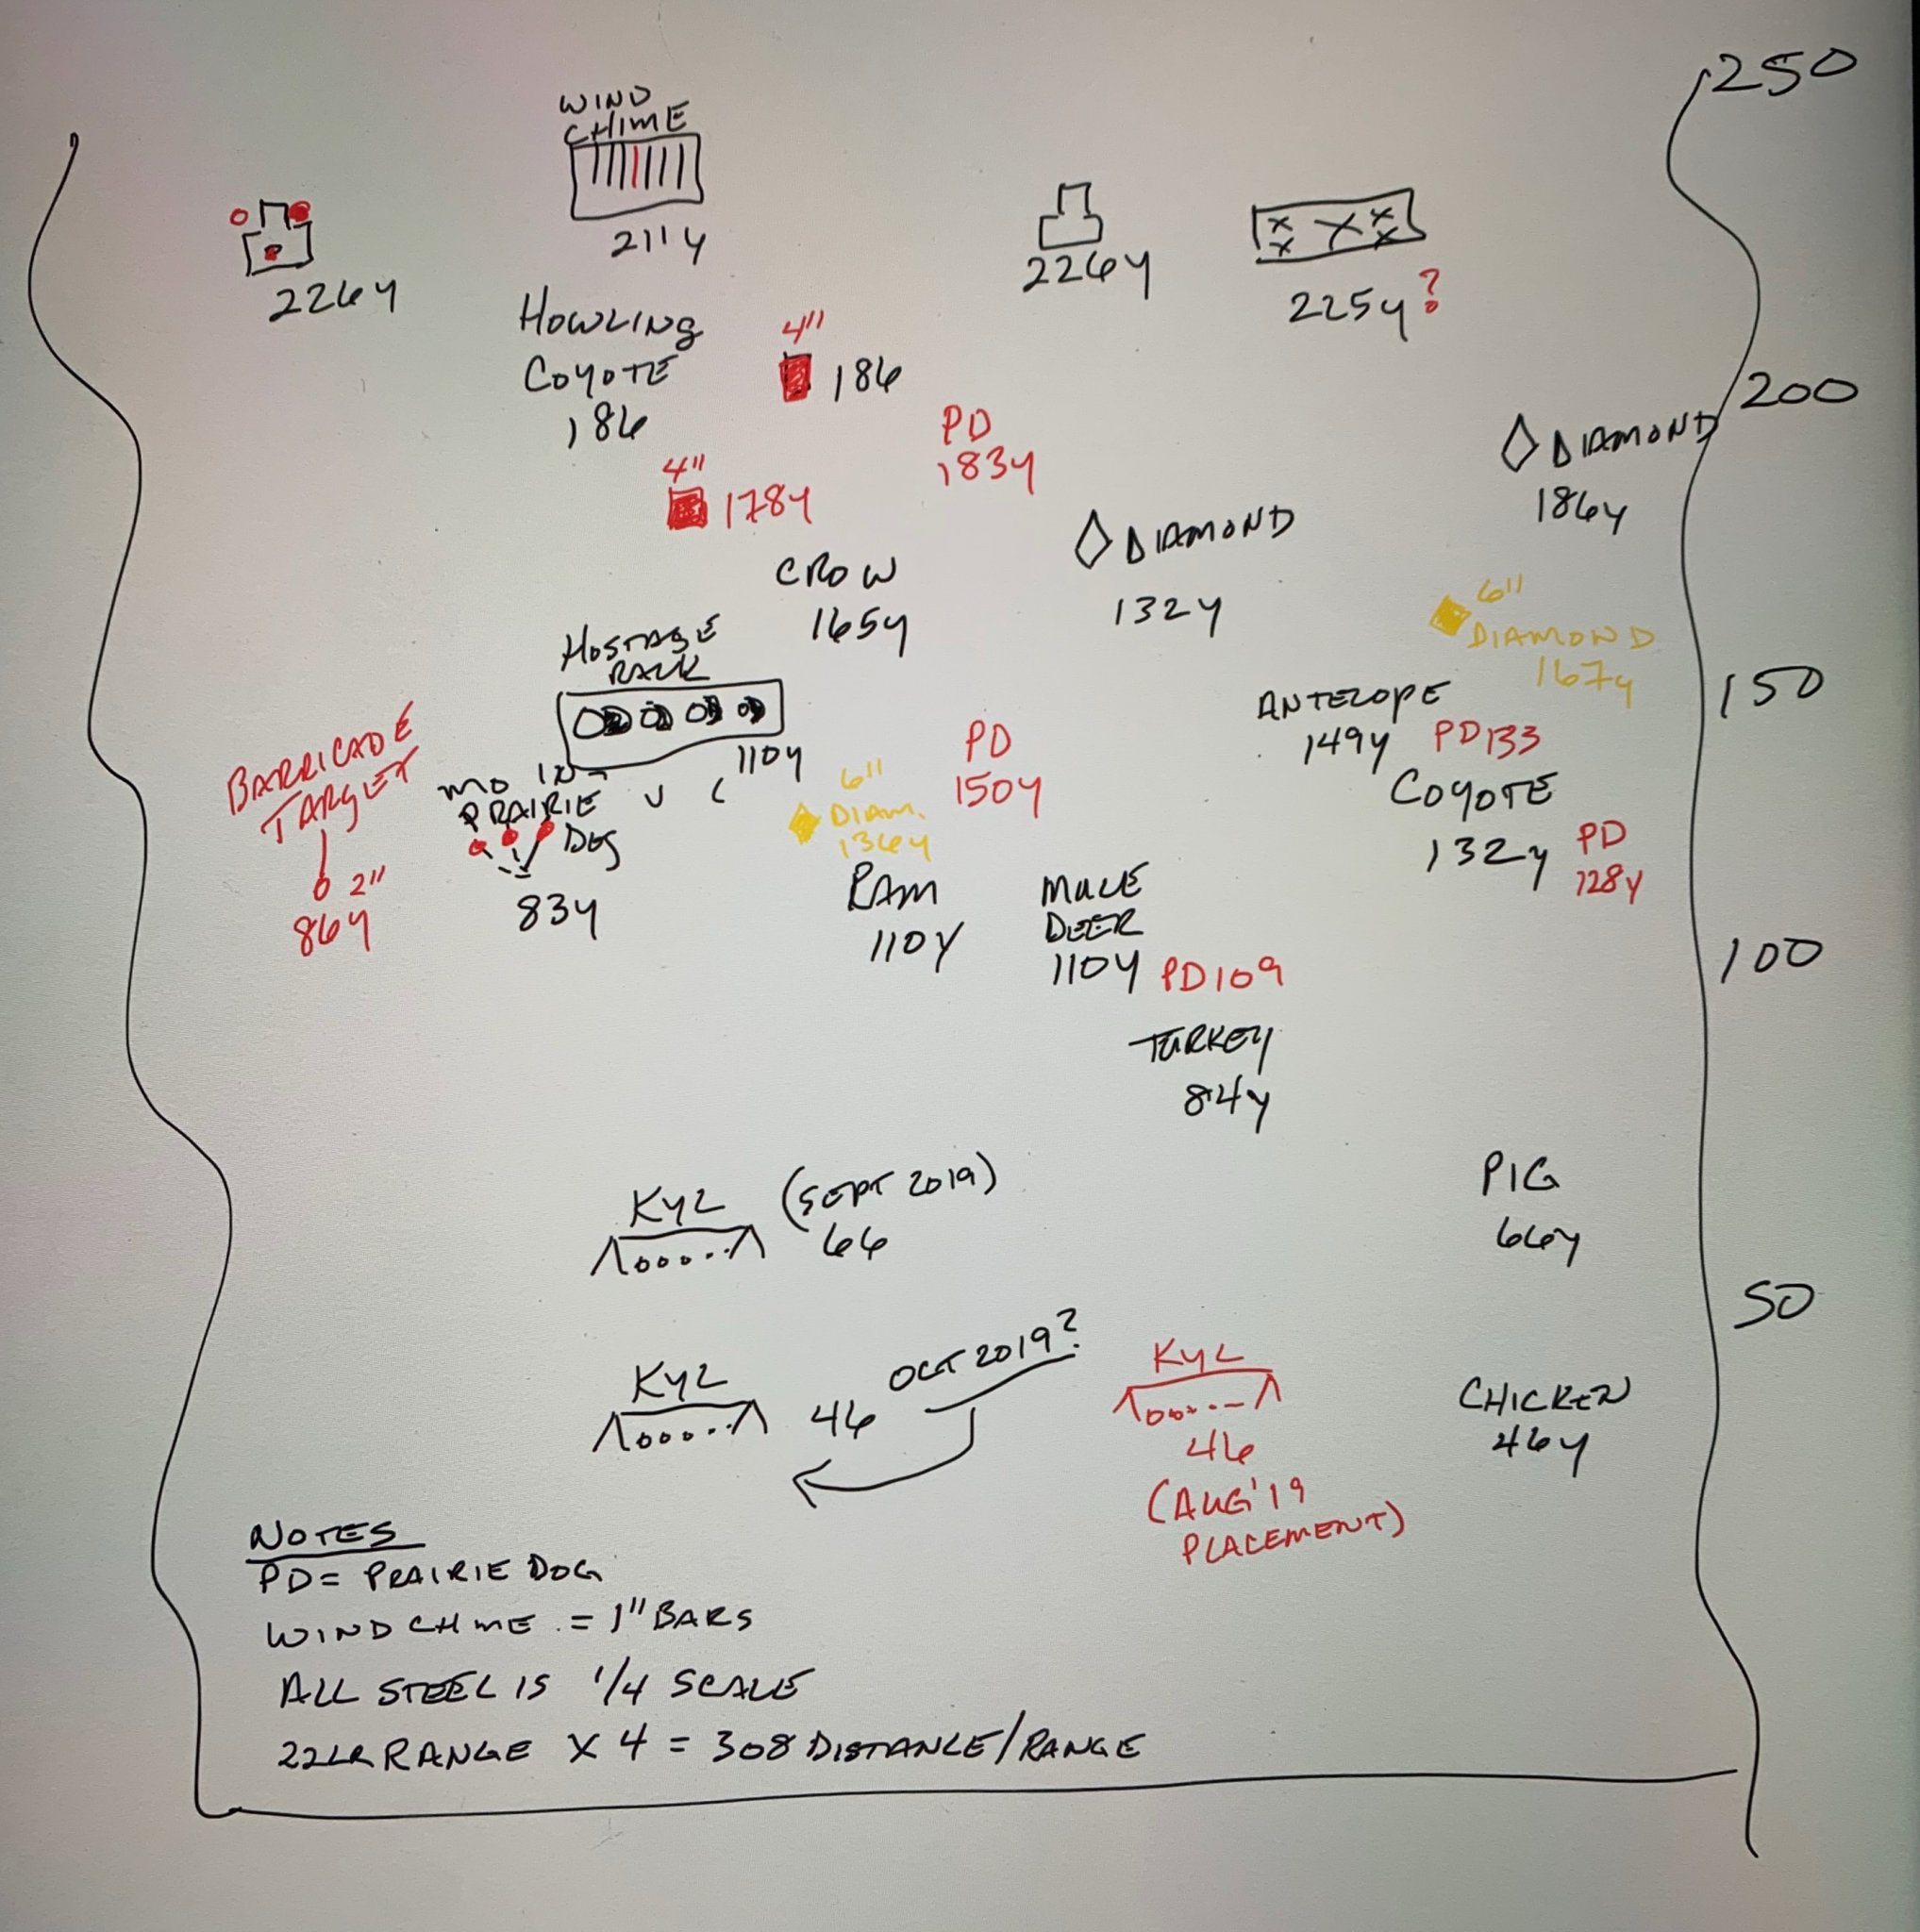 250
WIND
CHIME
211y
226y
226y
225y?
HOWLING
COYOTE
186
4"
186
200
PD
183y
DIAMOND
186y
4"
178y
DIAMOND
132y
CROW
165y
6"
DIAMOND
167y
HOSTAGE
RACK
110y
150
ANTELOPE
149y
PD133
COYOTE
132y
PD
128y
PD
150y
6"
DIAM.
136y
BARRICADE
TARGET
2"
86y
PRAIRIE
DOG
83y
RAM
110y
MULE
DEER
110y
PD109
100
TURKEY
84y
KYL
(SEPT 2019)
66
PIG
66y
50
KYL
46
OCT 2019?
KYL
46
(AUG'19
PLACEMENT)
CHICKEN
46y
NOTES
PD = PRAIRIE DOG
WIND CHIME = 1" BARS
ALL STEEL IS 1/4 SCALE
22LR RANGE X 4 = 308 DISTANCE/RANGE